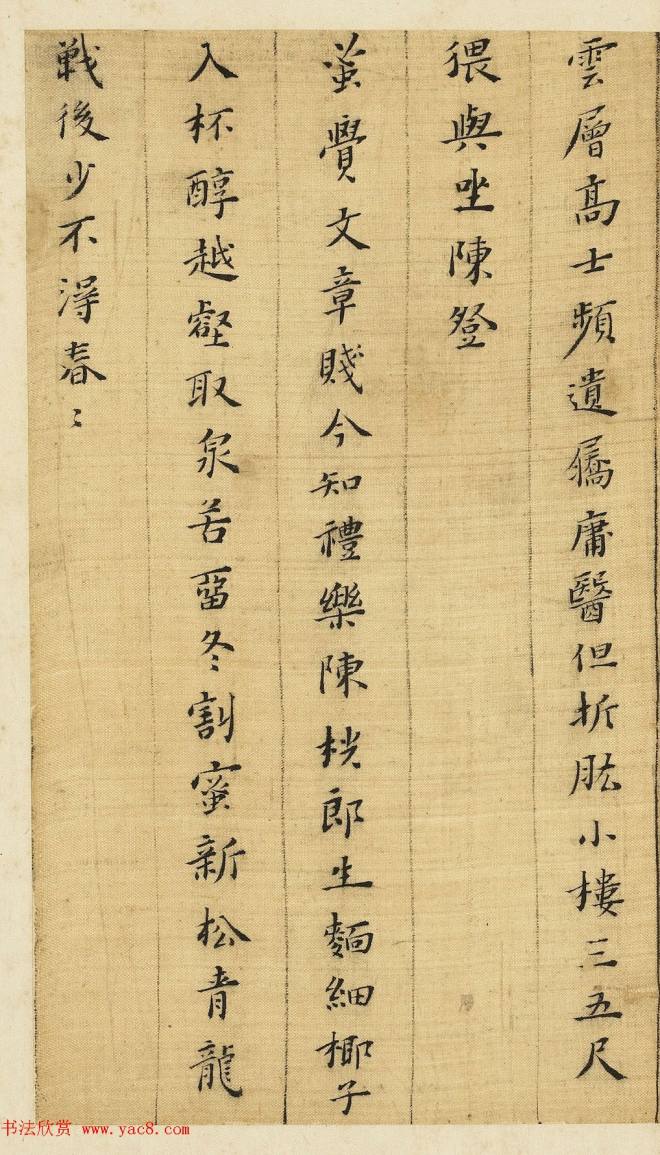 雲層髙士頻遺屩庸醫但折肱小樓三五尺
猥與坐陳登
蚤覺文章賤今知禮樂陳桄郎生麵細椰子
入杯醇越壑取泉苦畱冬割蜜新松青龍
戰後少不淂春〻
书法欣赏 www.yac8.com